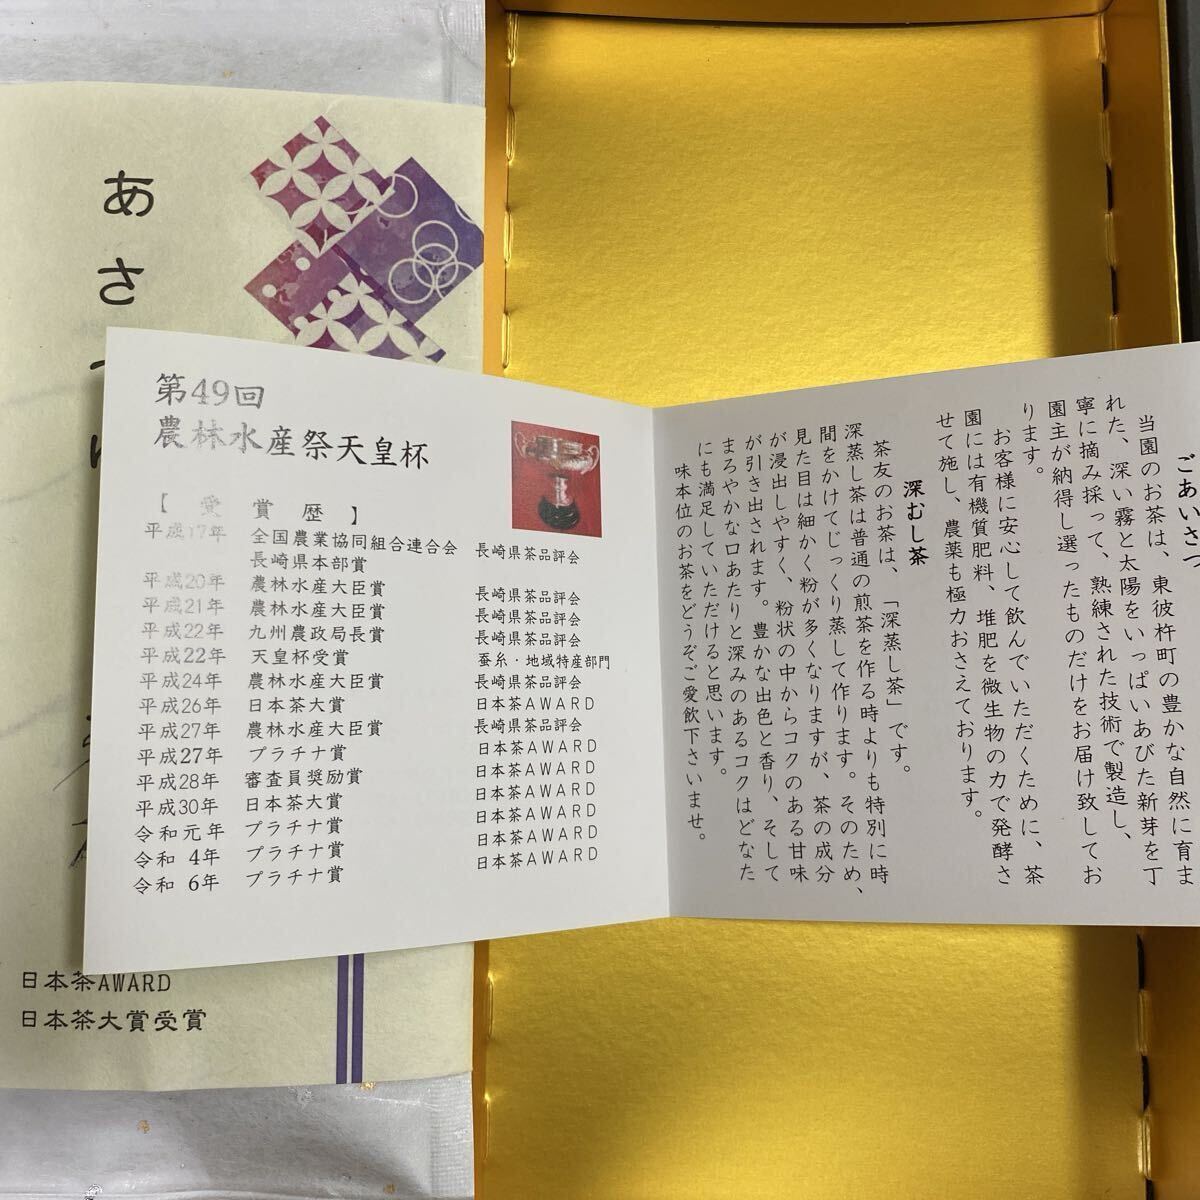 あさ
第49回
農林水産祭天皇杯
【愛賞歴】
平成17年 全国農業協同組合連合会 長崎県茶品評会
長崎県本部賞
平成20年 農林水産大臣賞 長崎県茶品評会
平成21年 農林水産大臣賞 長崎県茶品評会
平成22年 九州農政局長賞 長崎県茶品評会
平成22年 天皇杯受賞 蚕糸・地域特産部門
平成24年 農林水産大臣賞 長崎県茶品評会
平成26年 日本茶大賞 日本茶AWARD
平成27年 農林水産大臣賞 長崎県茶品評会
平成27年 プラチナ賞 日本茶AWARD
平成28年 審査員奨励賞 日本茶AWARD
平成30年 日本茶大賞 日本茶AWARD
令和元年 プラチナ賞 日本茶AWARD
令和 4年 プラチナ賞 日本茶AWARD
令和 6年 プラチナ賞 日本茶AWARD
ごあいさつ
当園のお茶は、東彼杵町の豊かな自然に育ま
れた、深い霧と太陽をいっぱいあびた新芽を丁
寧に摘み採って、熟練された技術で製造し、
園主が納得し選ったものだけをお届け致してお
ります。
お客様に安心して飲んでいただくために、茶
園には有機質肥料、堆肥を微生物の力で発酵さ
せて施し、農薬も極力おさえております。
深むし茶
茶友のお茶は、「深蒸し茶」です。
深蒸し茶は普通の煎茶を作る時よりも特別に時
間をかけてじっくり蒸して作ります。そのため、
見た目は細かく粉が多くなりますが、茶の成分
が浸出しやすく、粉状の中からコクのある甘味
が引き出されます。豊かな出色と香り、そして
まろやかな口あたりと深みのあるコクはどなた
にも満足していただけると思います。
味本位のお茶をどうぞご愛飲下さいませ。
日本茶AWARD
日本茶大賞受賞